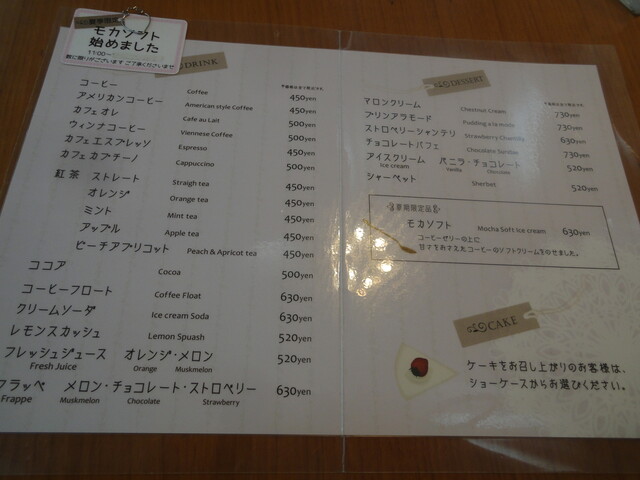 モカソフト
始めました
11:00～
数に限りがございます ご了承くださいませ
DRINK
コーヒー Coffee 450yen
アメリカンコーヒー American style Coffee 450yen
カフェオレ Cafe au Lait 500yen
ウィンナコーヒー Viennese Coffee 500yen
カフェエスプレッソ Espresso 450yen
カフェカプチーノ Cappuccino 500yen
紅茶 ストレート Straigh tea 450yen
オレンジ Orange tea 450yen
ミント Mint tea 450yen
アップル Apple tea 450yen
ピーチアプリコット Peach & Apricot tea 450yen
ココア Cocoa 500yen
コーヒーフロート Coffee Float 630yen
クリームソーダ Ice cream Soda 630yen
レモンスカッシュ Lemon Spuash 520yen
フレッシュジュース オレンジ・メロン 520yen
Fresh Juice Orange Muskmelon
フラッペ メロン・チョコレート・ストロベリー 630yen
Frappe Muskmelon Chocolate Strawberry
DESSERT
マロンクリーム Chestnut Cream 730yen
プリンアラモード Pudding a la mode 730yen
ストロベリーシャンテリ Strawberry Chantilly 630yen
チョコレートパフェ Chocolate Sundae 730yen
アイスクリーム バニラ・チョコレート 520yen
Ice cream Vanilla Chocolate
シャーベット Sherbet 520yen
夏期限定品
モカソフト Mocha Soft ice cream 630yen
コーヒーゼリーの上に
甘さをおさえたコーヒーのソフトクリームをのせました。
CAKE
ケーキをお召し上がりのお客様は、
ショーケースからお選びください。